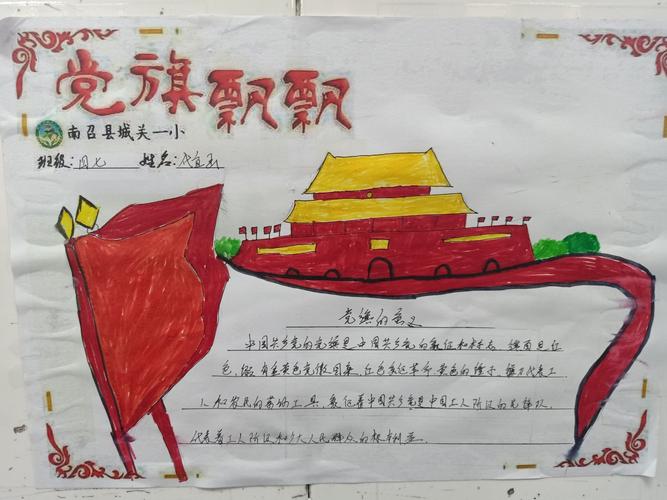 党旗飘飘
南召县城关一小
班级:四七 姓名:代宜
党旗的意义
中国共产党的党旗是中国共产党的象征和标志 旗面是红
色,缀有金黄色党徽图案,红色象征革命 黄色的锤子 镰刀代表工
人和农民的劳动工具,象征着中国共产党是中国工人阶级的先锋队,
代表着工人阶级和广大人民群众的根本利益.